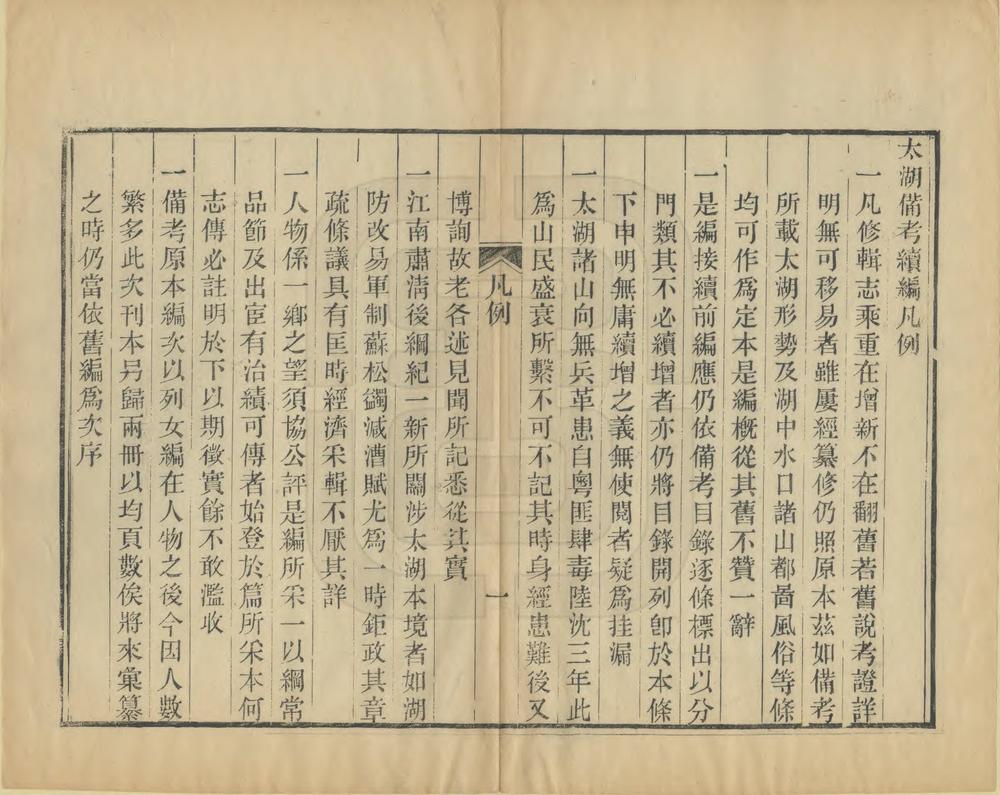 太湖備考續編凡例
一凡修輯志乘重在增新不在翻舊若舊說考證詳
明無可移易者雖屢經纂修仍照原本茲如備考
所載太湖形勢及湖中水口諸山都啚風俗等條
均可作爲定本是編槪從其舊不贊一辭
一是編接續前編應仍依備考目錄逐條標出以分
門類其不必續增者亦仍將目錄開列卽於本條
下申明無庸續增之義無使閱者疑爲挂漏
一太湖諸山向無兵革患自粵匪肆毒陸沈三年此
爲山民盛衰所繫不可不記其時身經患難後又
凡例
一
博詢故老各述見聞所記悉從其實
一江南肅淸後綱紀一新所關涉太湖本境者如湖
防改易軍制蘇松蠲減漕賦尤爲一時鉅政其章
疏條議具有匡時經濟采輯不厭其詳
一人物係一鄕之望須協公評是編所采一以綱常
品節及出宦有治績可傳者始登於篇所采本何
志傳必註明於下以期徵實餘不敢濫收
一備考原本編次以列女編在人物之後今因人數
繁多此次刊本另歸兩冊以均頁數俟將來彙纂
之時仍當依舊編爲次序